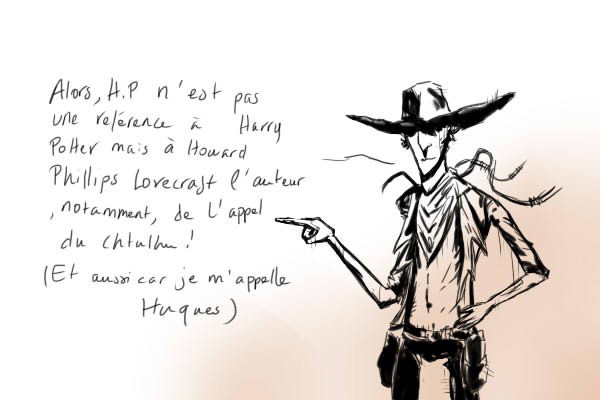 Alors, H.P n'est pas
une référence à Harry
Potter mais à Howard
Phillips Lovecraft l'auteur
, notamment, de L'appel
du chtulhu!
(Et aussi car je m'appelle
Hugues)